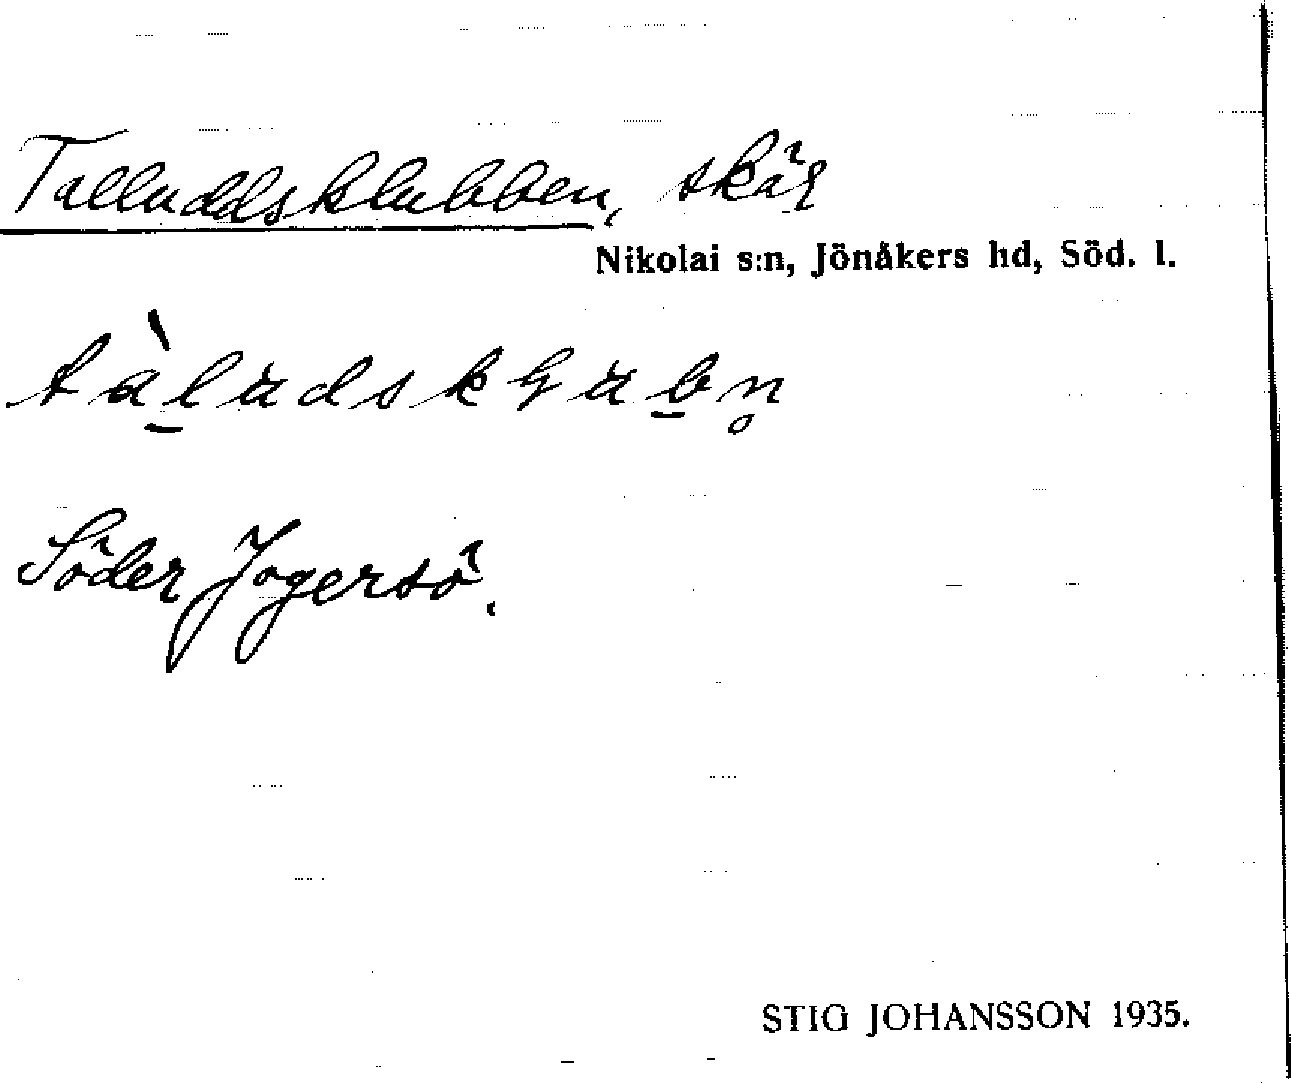 Talluddsklubben, skär
Nikolai s:n, Jönåkers hd, Söd. l.
tàludskɭubn̥
Söder Jogersö.
STIG JOHANSSON 1935.